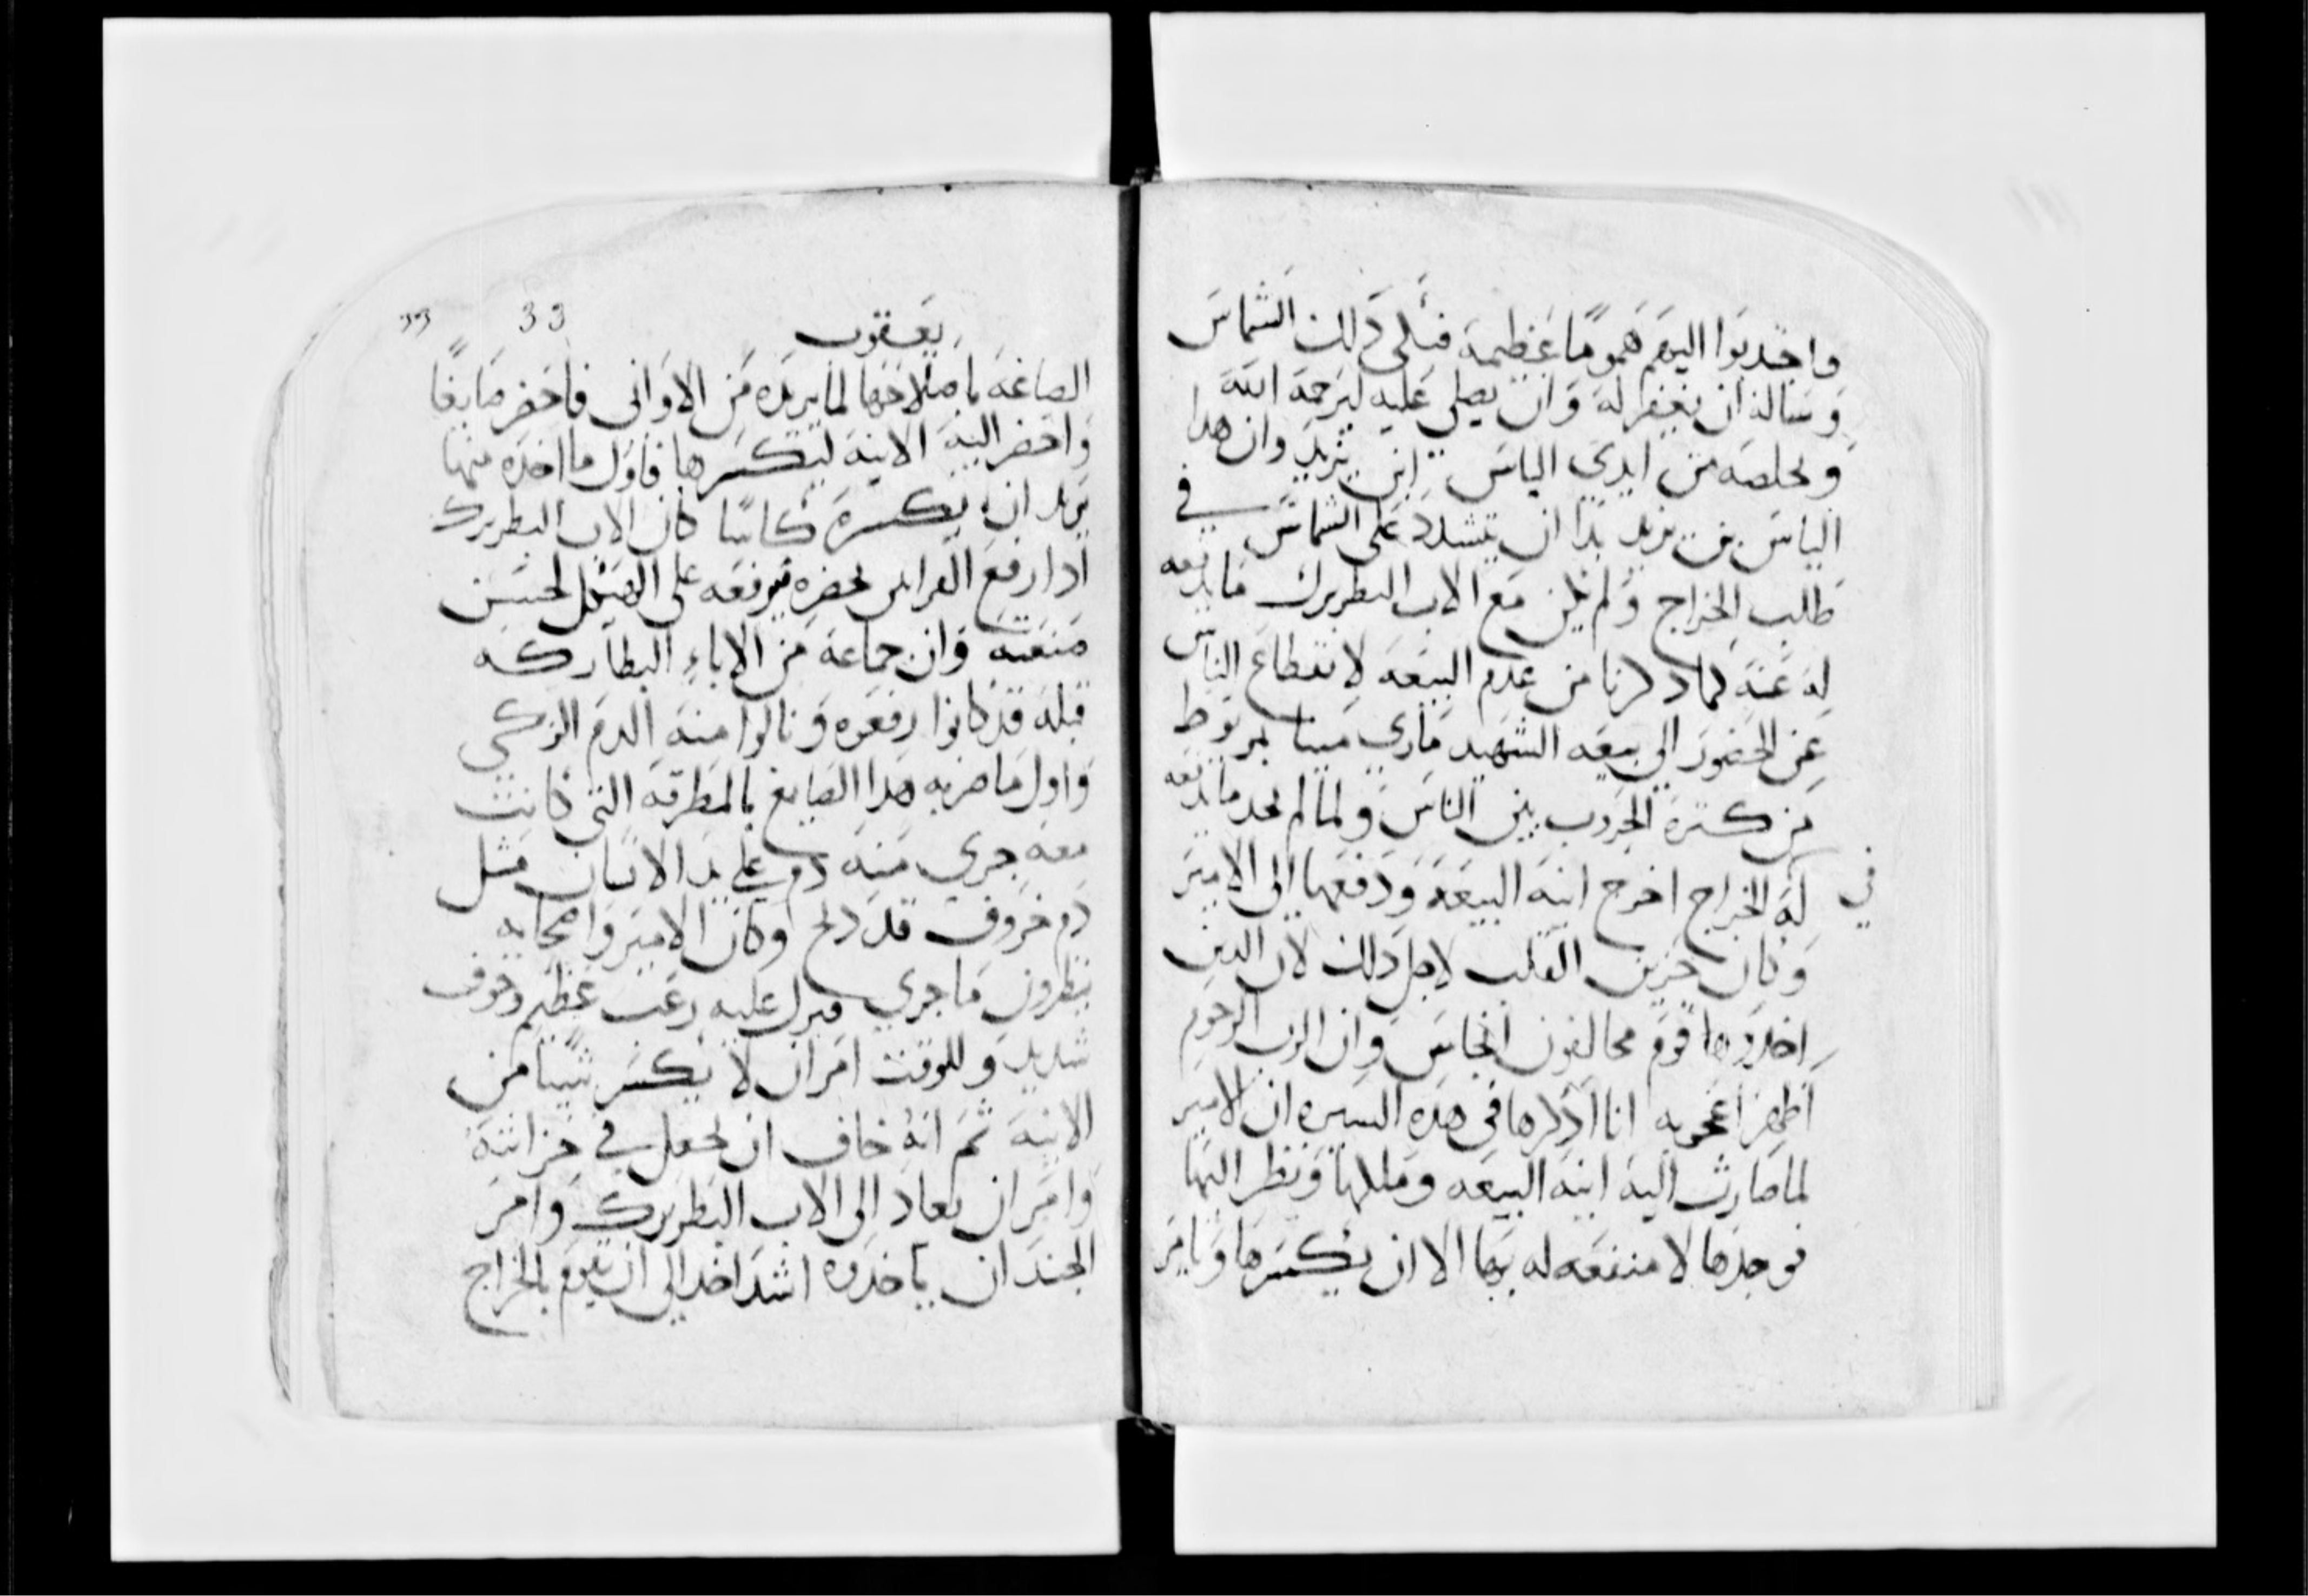 واجدبوا اليهم هموما عظيمة فبكى دلك الشماس
وساله ان يغفر له وان يصلي عليه ليرحمة الله
ويخلصه من ايدي الياس ابن يزيد وان هدا
الياس بن يزيد بدا ان يتشدد على الشماس في
طلب الخراج ولم يكن مع الاب البطريرك ما يدفعه
له عنه كما دكرنا من عدم البيعه لانقطاع الناس
عن الحضور الى بيعه الشهيد ماري مينا بمريوط
من كترة الحروب بين الناس ولما لم يجد ما يدفعه
في له الخراج اخرج انية البيعة ودفعها الى الامير
وكان حزين القلب لاجل دلك لان الدين
اخدوها قوم مخالفون انجاس وان الرب الرحوم
اظهر اعجوبه انا ادكرها في هده السيره ان الامير
لما صارت اليه انية البيعه وملكها ونظر اليها
فوجدها لا منفعه له بها الا ان يكسرها ويامر
33 33
يعقوب
الصاغة باصلاحها لما يريده من الاواني فاحضر صايغا
واحضر اليه الانية ليكسرها فاول ما اخده منها
يريد ان يكسره كاسا كان الاب البطريرك
ادا رفع القرابين يحضره فيرفعه على الهيكل لحسن
صنعته وان جماعة من الاباء البطاركه
قبله قد كانوا رفعوه ونالوا منه الدم الزكي
واول ما ضربه هدا الصايغ بالمطرقة التي كانت
معه جرى منه دم على يد الانسان مثل
دم خروف قد دبح وكان الامير واصحابه
ينظرون ما جرى فنزل عليه رعب عظيم وخوف
شديد وللوقت امر ان لا يكسر شيئا من
الانية ثم انه خاف ان يجعل في خزانته
وامر ان يعاد الى الاب البطريرك وامر
الجند ان ياخدوه اشد اخد الى ان يقوم بالخراج